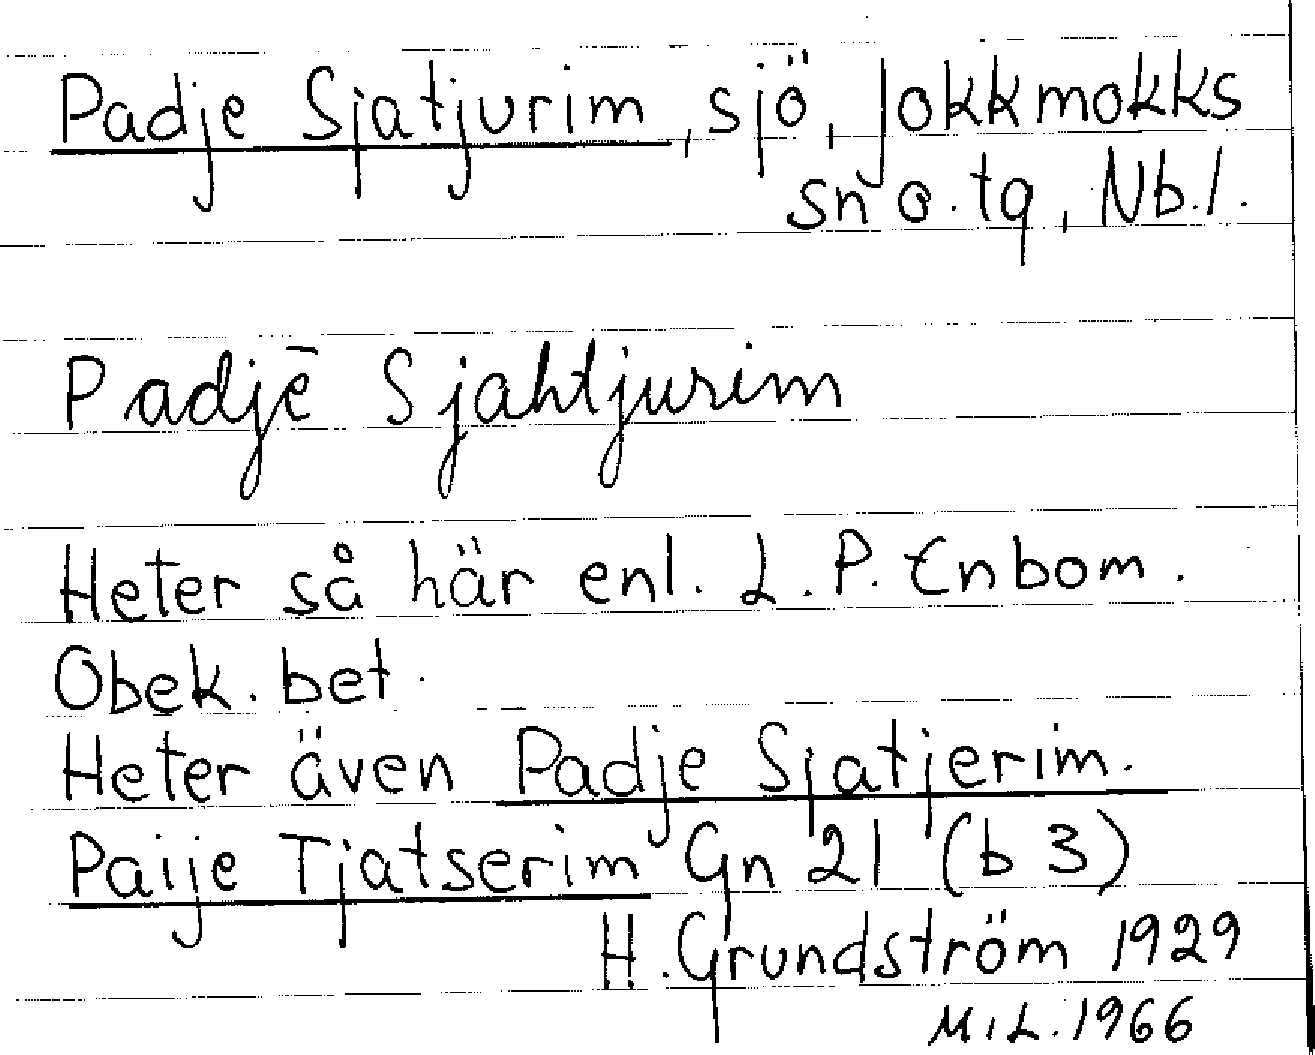 Padje Sjatjurim, sjö, Jokkmokks
sn o. tg, Nb.l.
Padjē Sjahtjurim
Heter så här enl. L. P. Enbom.
Obek. bet.
Heter även Padje Sjatjerim.
Paije Tjatserim Gn 21 (b 3)
H. Grundström 1929
M.L. 1966